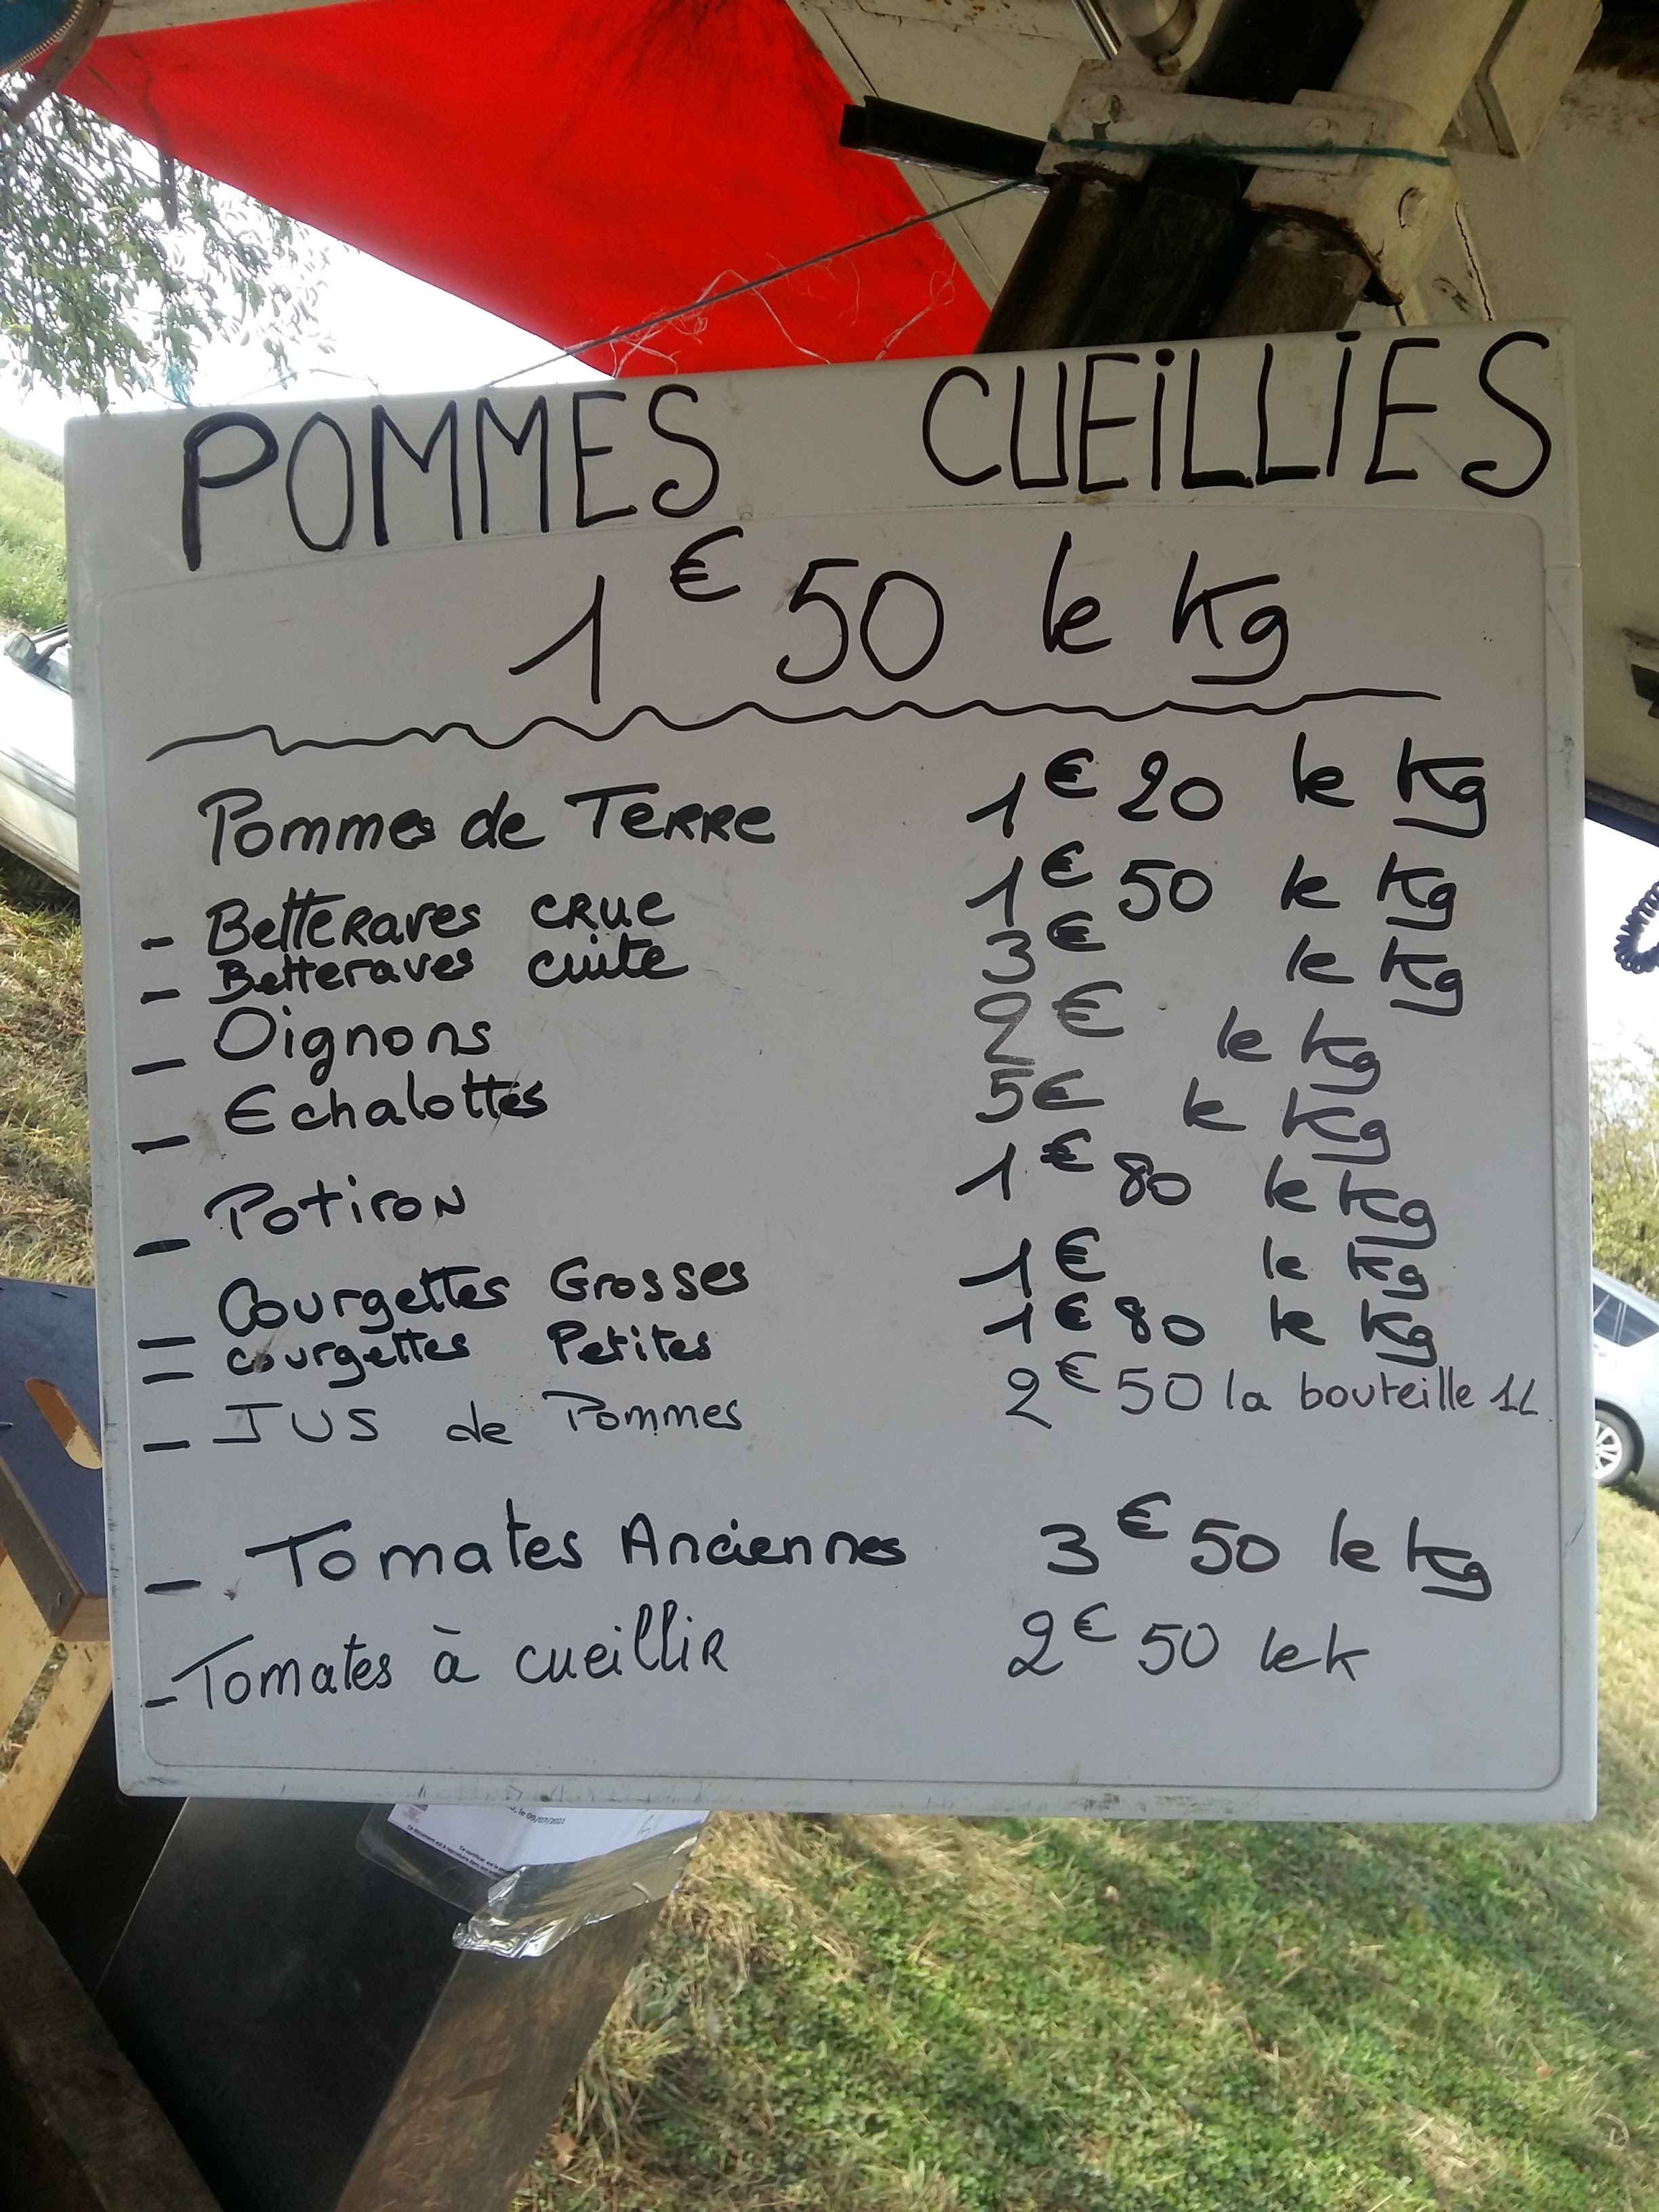 POMMES CUEiLLiES
1€50 le Kg
Pommes de TERRE 1€20 le Kg
- Betteraves crue 1€50 le Kg
- Betteraves cuite 3€ le Kg
- Oignons 2€ le Kg
- Echalottes 5€ le Kg
- Potiron 1€80 le Kg
- Courgettes Grosses 1€ le Kg
- courgettes Petites 1€80 le Kg
- JUS de Pommes 2€50 la bouteille 1L
- Tomates Anciennes 3€50 le Kg
- Tomates à cueillir 2€50 le k
le 09/07/2021